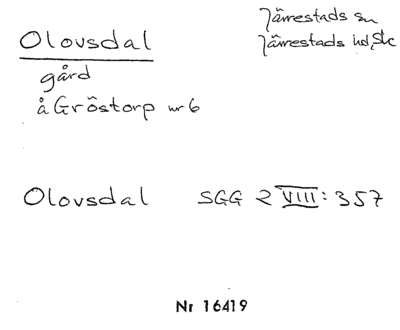 Olovsdal
Järrestads sn
Järrestads hd, Sk
gård
å Gröstorp nr 6
Olovsdal SGG 2 VIII: 357
Nr 16419